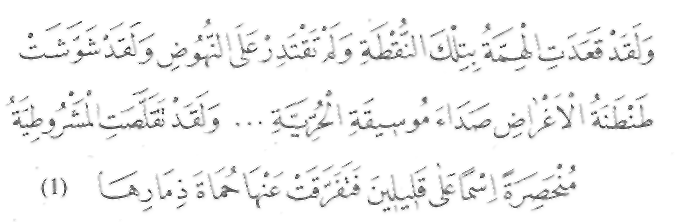 وَلَقَدْ قَعَدَتِ الْهِمَّةُ بِتِلْكَ النُّقْطَةِ وَلَمْ تَقْتَدِرْ عَلَى النُّهُوضِ وَلَقَدْ شَوَّشَتْ
طَنْطَنَةُ الْاَغْرَاضِ صَدَاءَ مُوسِيقَةِ الْحُرِّيَّةِ ... وَلَقَدْ تَقَلَّصَتِ الْمَشْرُوطِيَّةُ
مُنْحَصِرَةً اِسْمًا عَلٰى قَلِيلِينَ فَتَفَرَّقَتْ عَنْهَا حُمَاةُ ذِمَارِهَا (1)